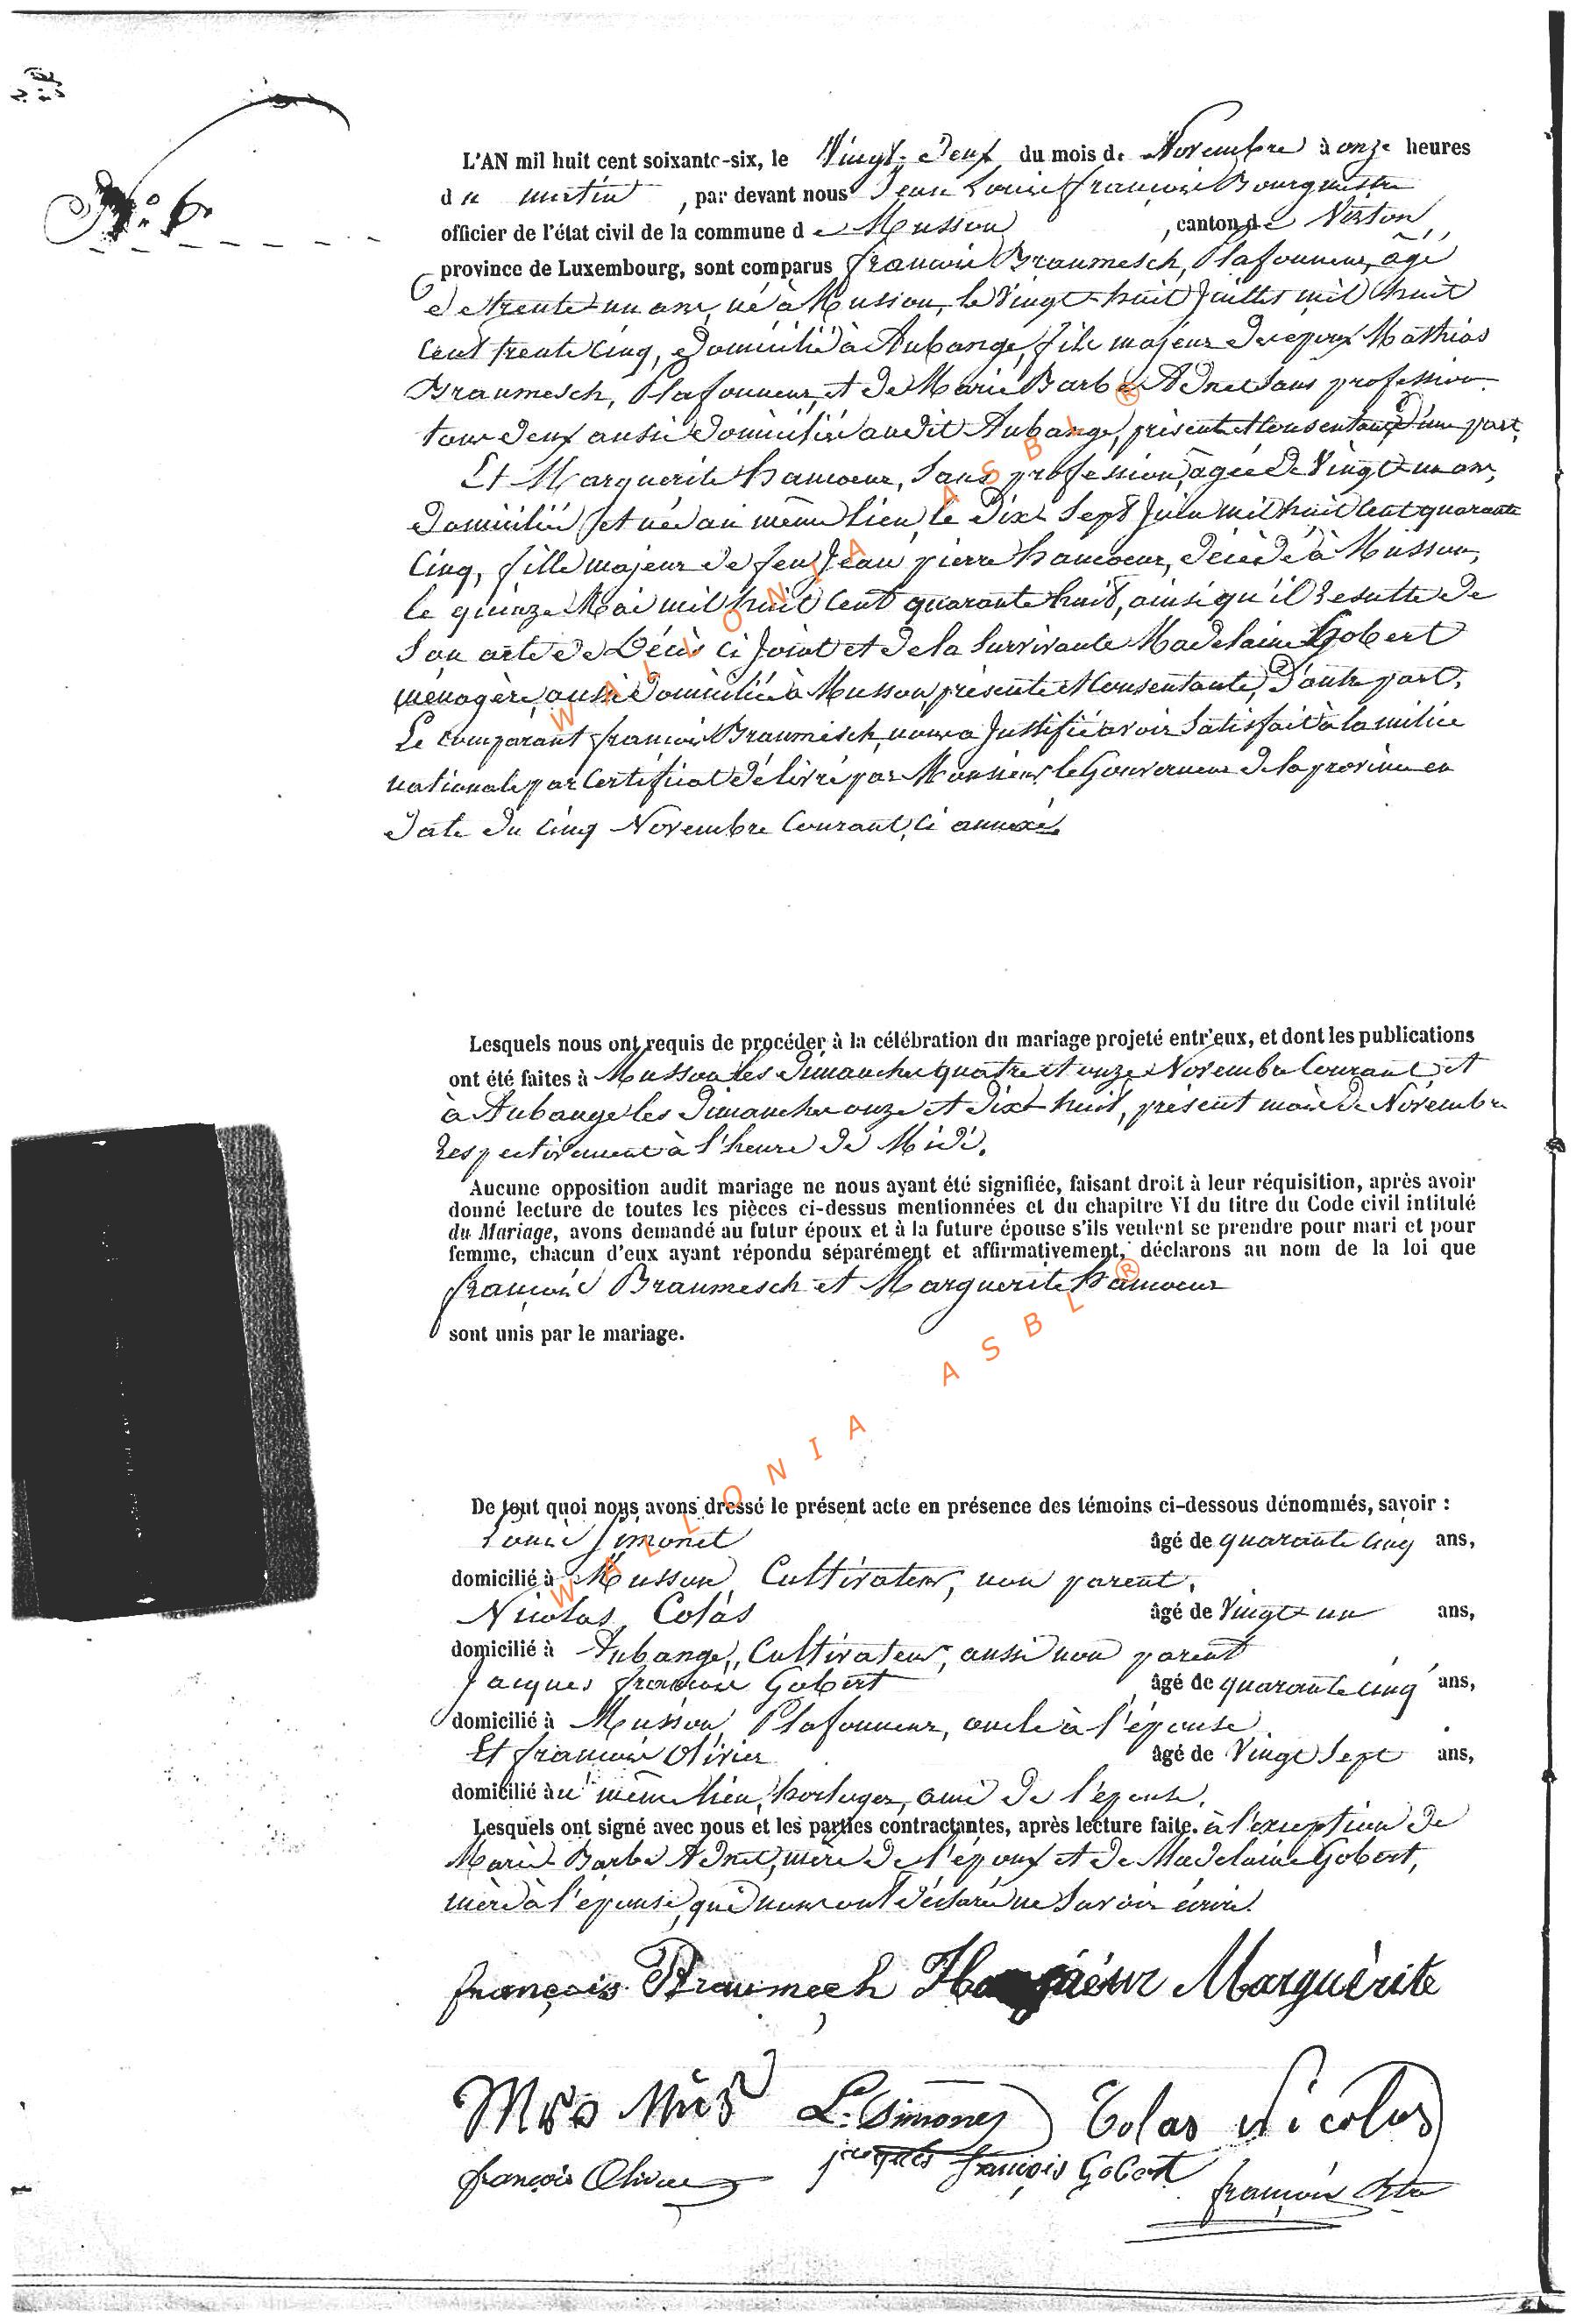 N.º 6.
L'AN mil huit cent soixante-six, le Vingt-Deux du mois de Novembre à onze heures
du matin, par devant nous Jean Louis françois Bourgmestre
officier de l'état civil de la commune de Musson, canton de Virton,
province de Luxembourg, sont comparus françois Braumesch, Plafonneur, âgé
de trente-un ans, né à Musson, le Vingt-huit Juillet mil huit
cent trente cinq, domicilié à Aubange, fils majeur des époux Mathias
Braumesch, Plafonneur, et de Marie Barbe Adnet sans profession
tous deux aussi domiciliés audit Aubange, présents et consentans D'une part.
Et Marguerite hamoeur, Sans profession, agée de Vingt-un ans,
domiciliée et née au même lieu, le Dix Sept Juin mil huit cent quarante
cinq, fille majeur de feu Jean pierre hamoeur, décédé à Musson,
le quinze Mai mil huit cent quarante huit, ainsi qu'il résulte de
Son acte de Décès ci Joint et de la Survivante Madelaine Gobert
ménagère, aussi domiciliée à Musson, présente et consentante, D'autre part.
Le comparant françois Braumesch, nous a Justifié avoir Satisfait à la milice
nationale par Certificat délivré par Monsieur le Gouverneur de la province en
date du cinq Novembre Courant, ci annexé.
Lesquels nous ont requis de procéder à la célébration du mariage projeté entr'eux, et dont les publications
ont été faites à Musson les Dimanches quatre et onze Novembre Courant, et
à Aubange les Dimanches onze et Dix-huit, présent mois de Novembre
respectivement à l'heure de Midi.
Aucune opposition audit mariage ne nous ayant été signifiée, faisant droit à leur réquisition, après avoir
donné lecture de toutes les pièces ci-dessus mentionnées et du chapitre VI du titre du Code civil intitulé
du Mariage, avons demandé au futur époux et à la future épouse s'ils veulent se prendre pour mari et pour
femme, chacun d'eux ayant répondu séparément et affirmativement, déclarons au nom de la loi que
françois Braumesch et Marguerite hamoeur
sont unis par le mariage.
De tout quoi nous avons dressé le présent acte en présence des témoins ci-dessous dénommés, savoir :
Louis Simonet âgé de quarante cinq ans,
domicilié à Musson, Cultivateur, non parent.
Nicolas Colas âgé de Vingt-un ans,
domicilié à Aubange, Cultivateur, aussi non parent
Jacques françois Gobert âgé de quarante cinq ans,
domicilié à Musson, Plafonneur, oncle à l'épouse.
Et françois Olivier âgé de Vingt Sept ans,
domicilié au même lieu, horloger, ami de l'épouse.
Lesquels ont signé avec nous et les parties contractantes, après lecture faite. à l'exception de
Marie Barbe Adnet, mère de l'époux et de Madelaine Gobert,
mère à l'épouse, qui nous ont déclaré ne Savoir écrire.
françois Braumech Marguèrite
L. Simonet Colas Nicolas
françois Olivier jacques françois Gobert françois
WALLONIA ASBL ®
WALLONIA ASBL ®